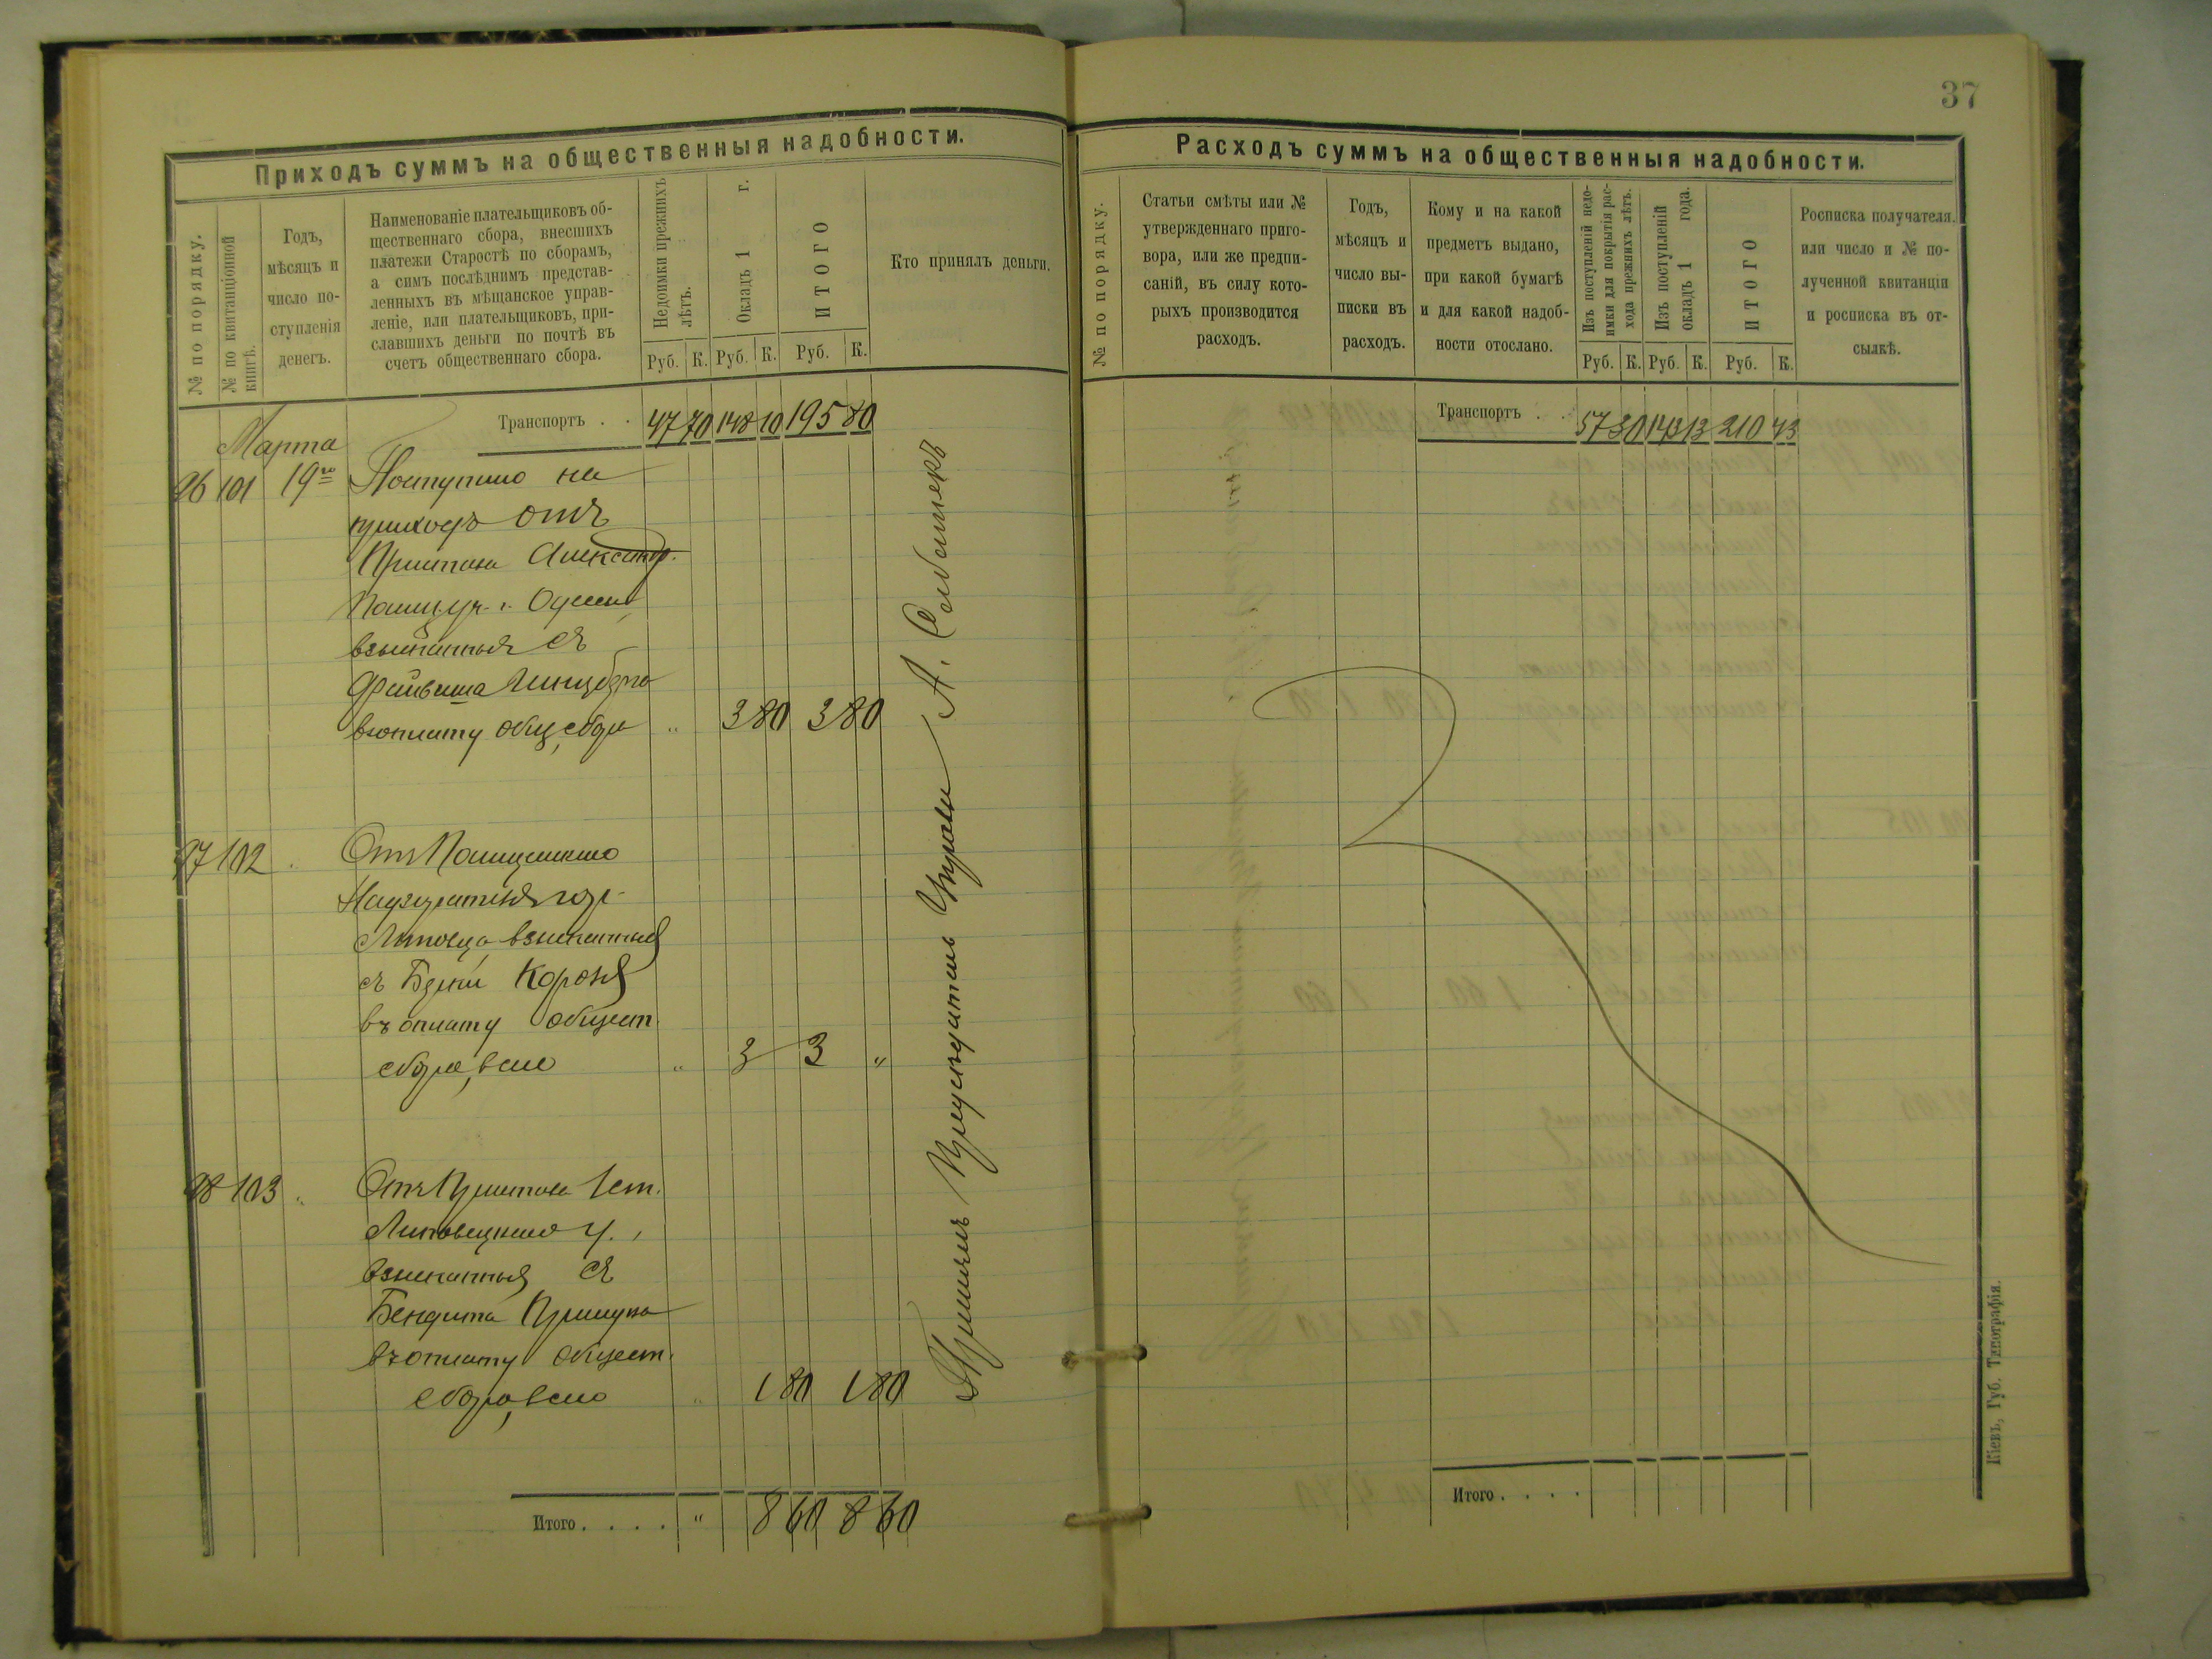 37
Приходъ суммъ на общественныя надобности.
№ по порядку.
№ по квитанціонной
книгѣ.
Годъ,
мѣсяцъ и
число по-
ступленія
денегъ.
Наименованіе плательщиковъ об-
щественнаго сбора, внесшихъ
платежи Старостѣ по сборамъ,
а симъ послѣднимъ представ-
ленныхъ въ мѣщанское управ-
леніе, или плательщиковъ, при-
славшихъ деньги по почтѣ въ
счетъ общественнаго сбора.
Недоимки прежнихъ
лѣтъ.
Окладъ 1 г.
ИТОГО
Руб. К. Руб. К. Руб. К.
Кто принялъ деньги.
Транспортъ . . 47 70 148 10 195 80
Марта
96 101 19го Поступило на
приходъ отъ
Пристава Александр.
Полиц. уч. г. Одессы,
взысканныя съ
Файвиша
въ оплату общ. сбора " 3 80 3 80
97 102 Отъ Полицейскаго
Надзирателя гор.
Липовца взысканныя
съ Короля
въ оплату общест.
сбора, всего " 3 3 "
98 103 Отъ Пристава 1 ст.
Липовецкаго у.,
взысканныя съ
Бендита
въ оплату общест.
сбора, всего " 1 80 1 80
Итого . . . . " 8 60 8 60
Принялъ Предсѣдатель Управы А.
Расходъ суммъ на общественныя надобности.
№ по порядку.
Статьи смѣты или №
утвержденнаго приго-
вора, или же предпи-
саній, въ силу кото-
рыхъ производится
расходъ.
Годъ,
мѣсяцъ и
число вы-
писки въ
расходъ.
Кому и на какой
предметъ выдано,
при какой бумагѣ
и для какой надоб-
ности отослано.
Изъ поступленій недо-
имки для покрытія рас-
хода прежнихъ лѣтъ.
Изъ поступленій
окладъ 1 года.
ИТОГО
Руб. К. Руб. К. Руб. К.
Росписка получателя.
или число и № по-
лученной квитанціи
и росписка въ от-
сылкѣ.
Транспортъ . . 57 30 143 13 210 43
Итого . . . .
Кіевъ, Губ. Типографія.